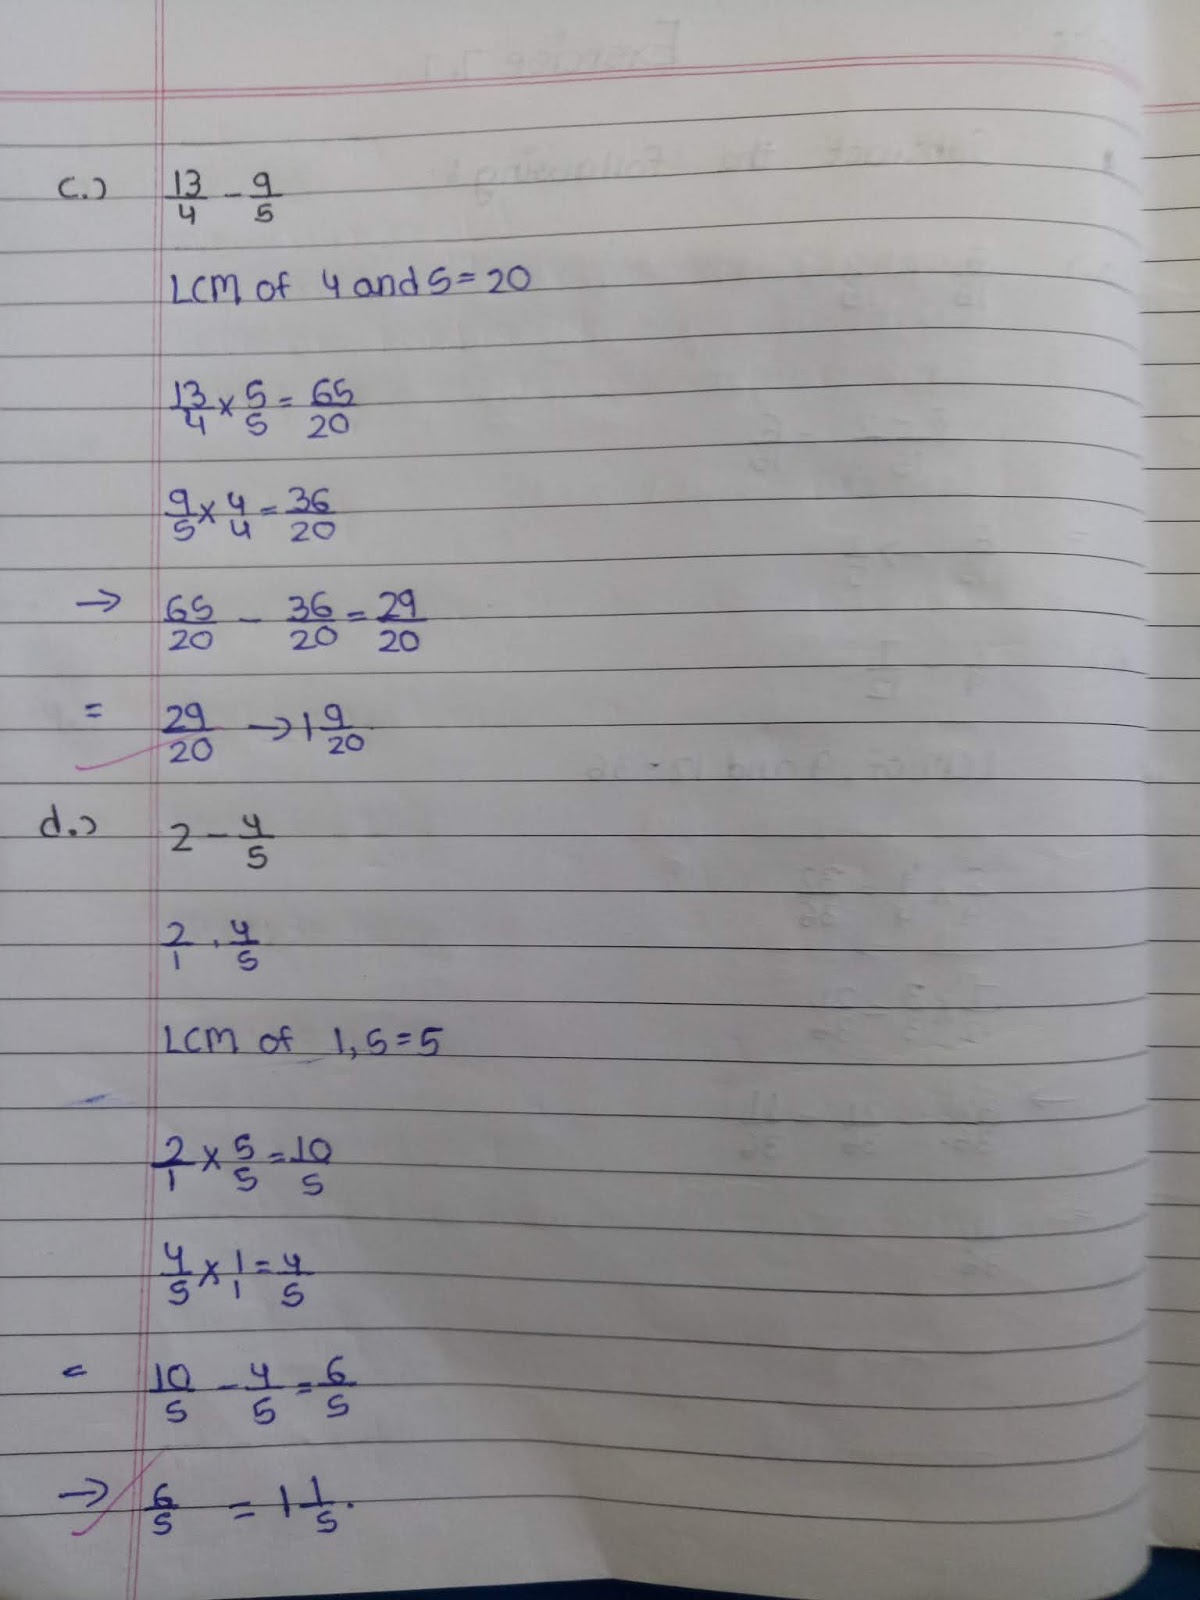 c.) 13/4 - 9/5
LCM of 4 and 5 = 20
13/4 × 5/5 = 65/20
9/5 × 4/4 = 36/20
→ 65/20 - 36/20 = 29/20
= 29/20 → 1 9/20
d.) 2 - 4/5
2/1 , 4/5
LCM of 1, 5 = 5
2/1 × 5/5 = 10/5
4/5 × 1/1 = 4/5
= 10/5 - 4/5 = 6/5
→ 6/5 = 1 1/5.